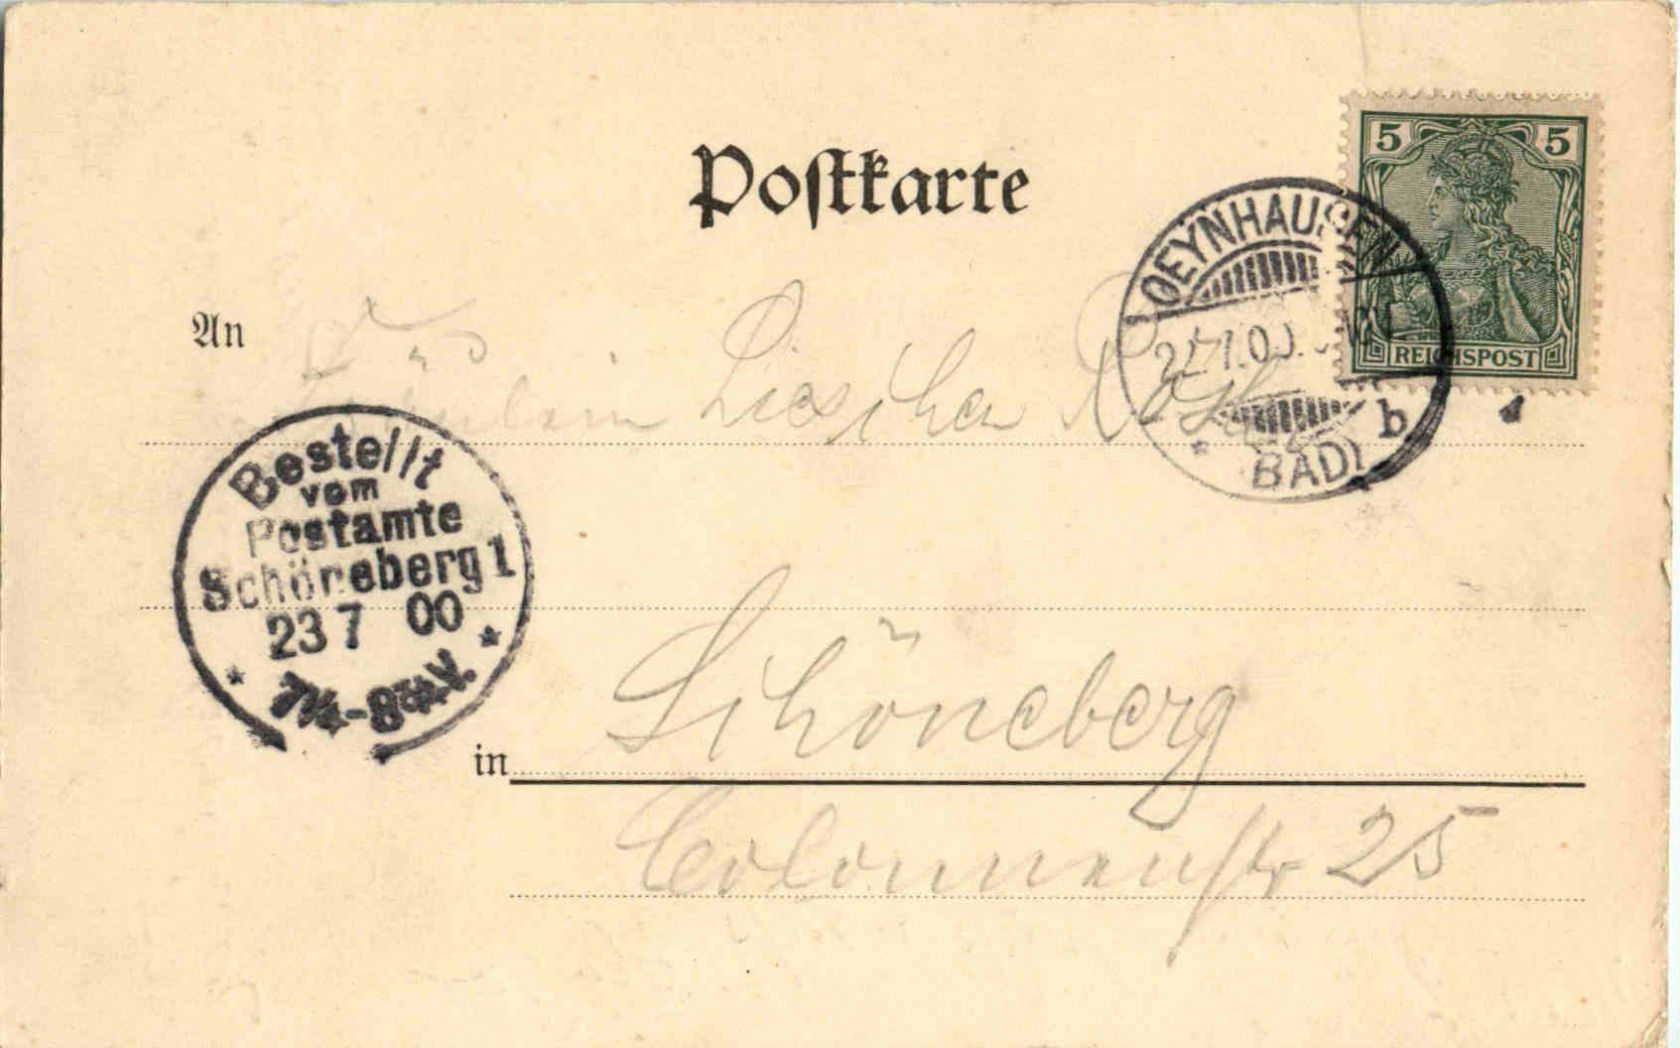 Postkarte
5 5
REICHSPOST
OEYNHAUSEN
b
(BAD)
An
Fräulein Lieschen
Bestellt
vom
Postamte
Schöneberg 1
23 7 00
7¼-8¾V.
in Schöneberg
Colonnenstr 25